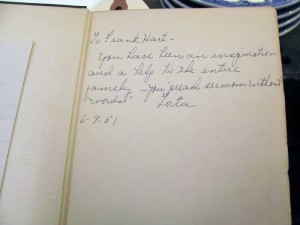 To Frank Hart -
"You have been an inspiration
and a help to the entire
family - you "preach sermons without
words"
6-9-61